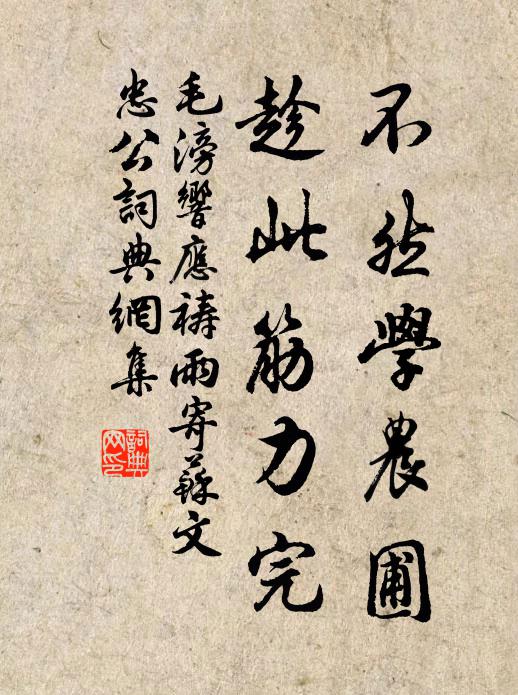 不然學農圃
趁此筋力完
毛滂響應禱雨寄蘇文
忠公詞典網集
詞典
网印